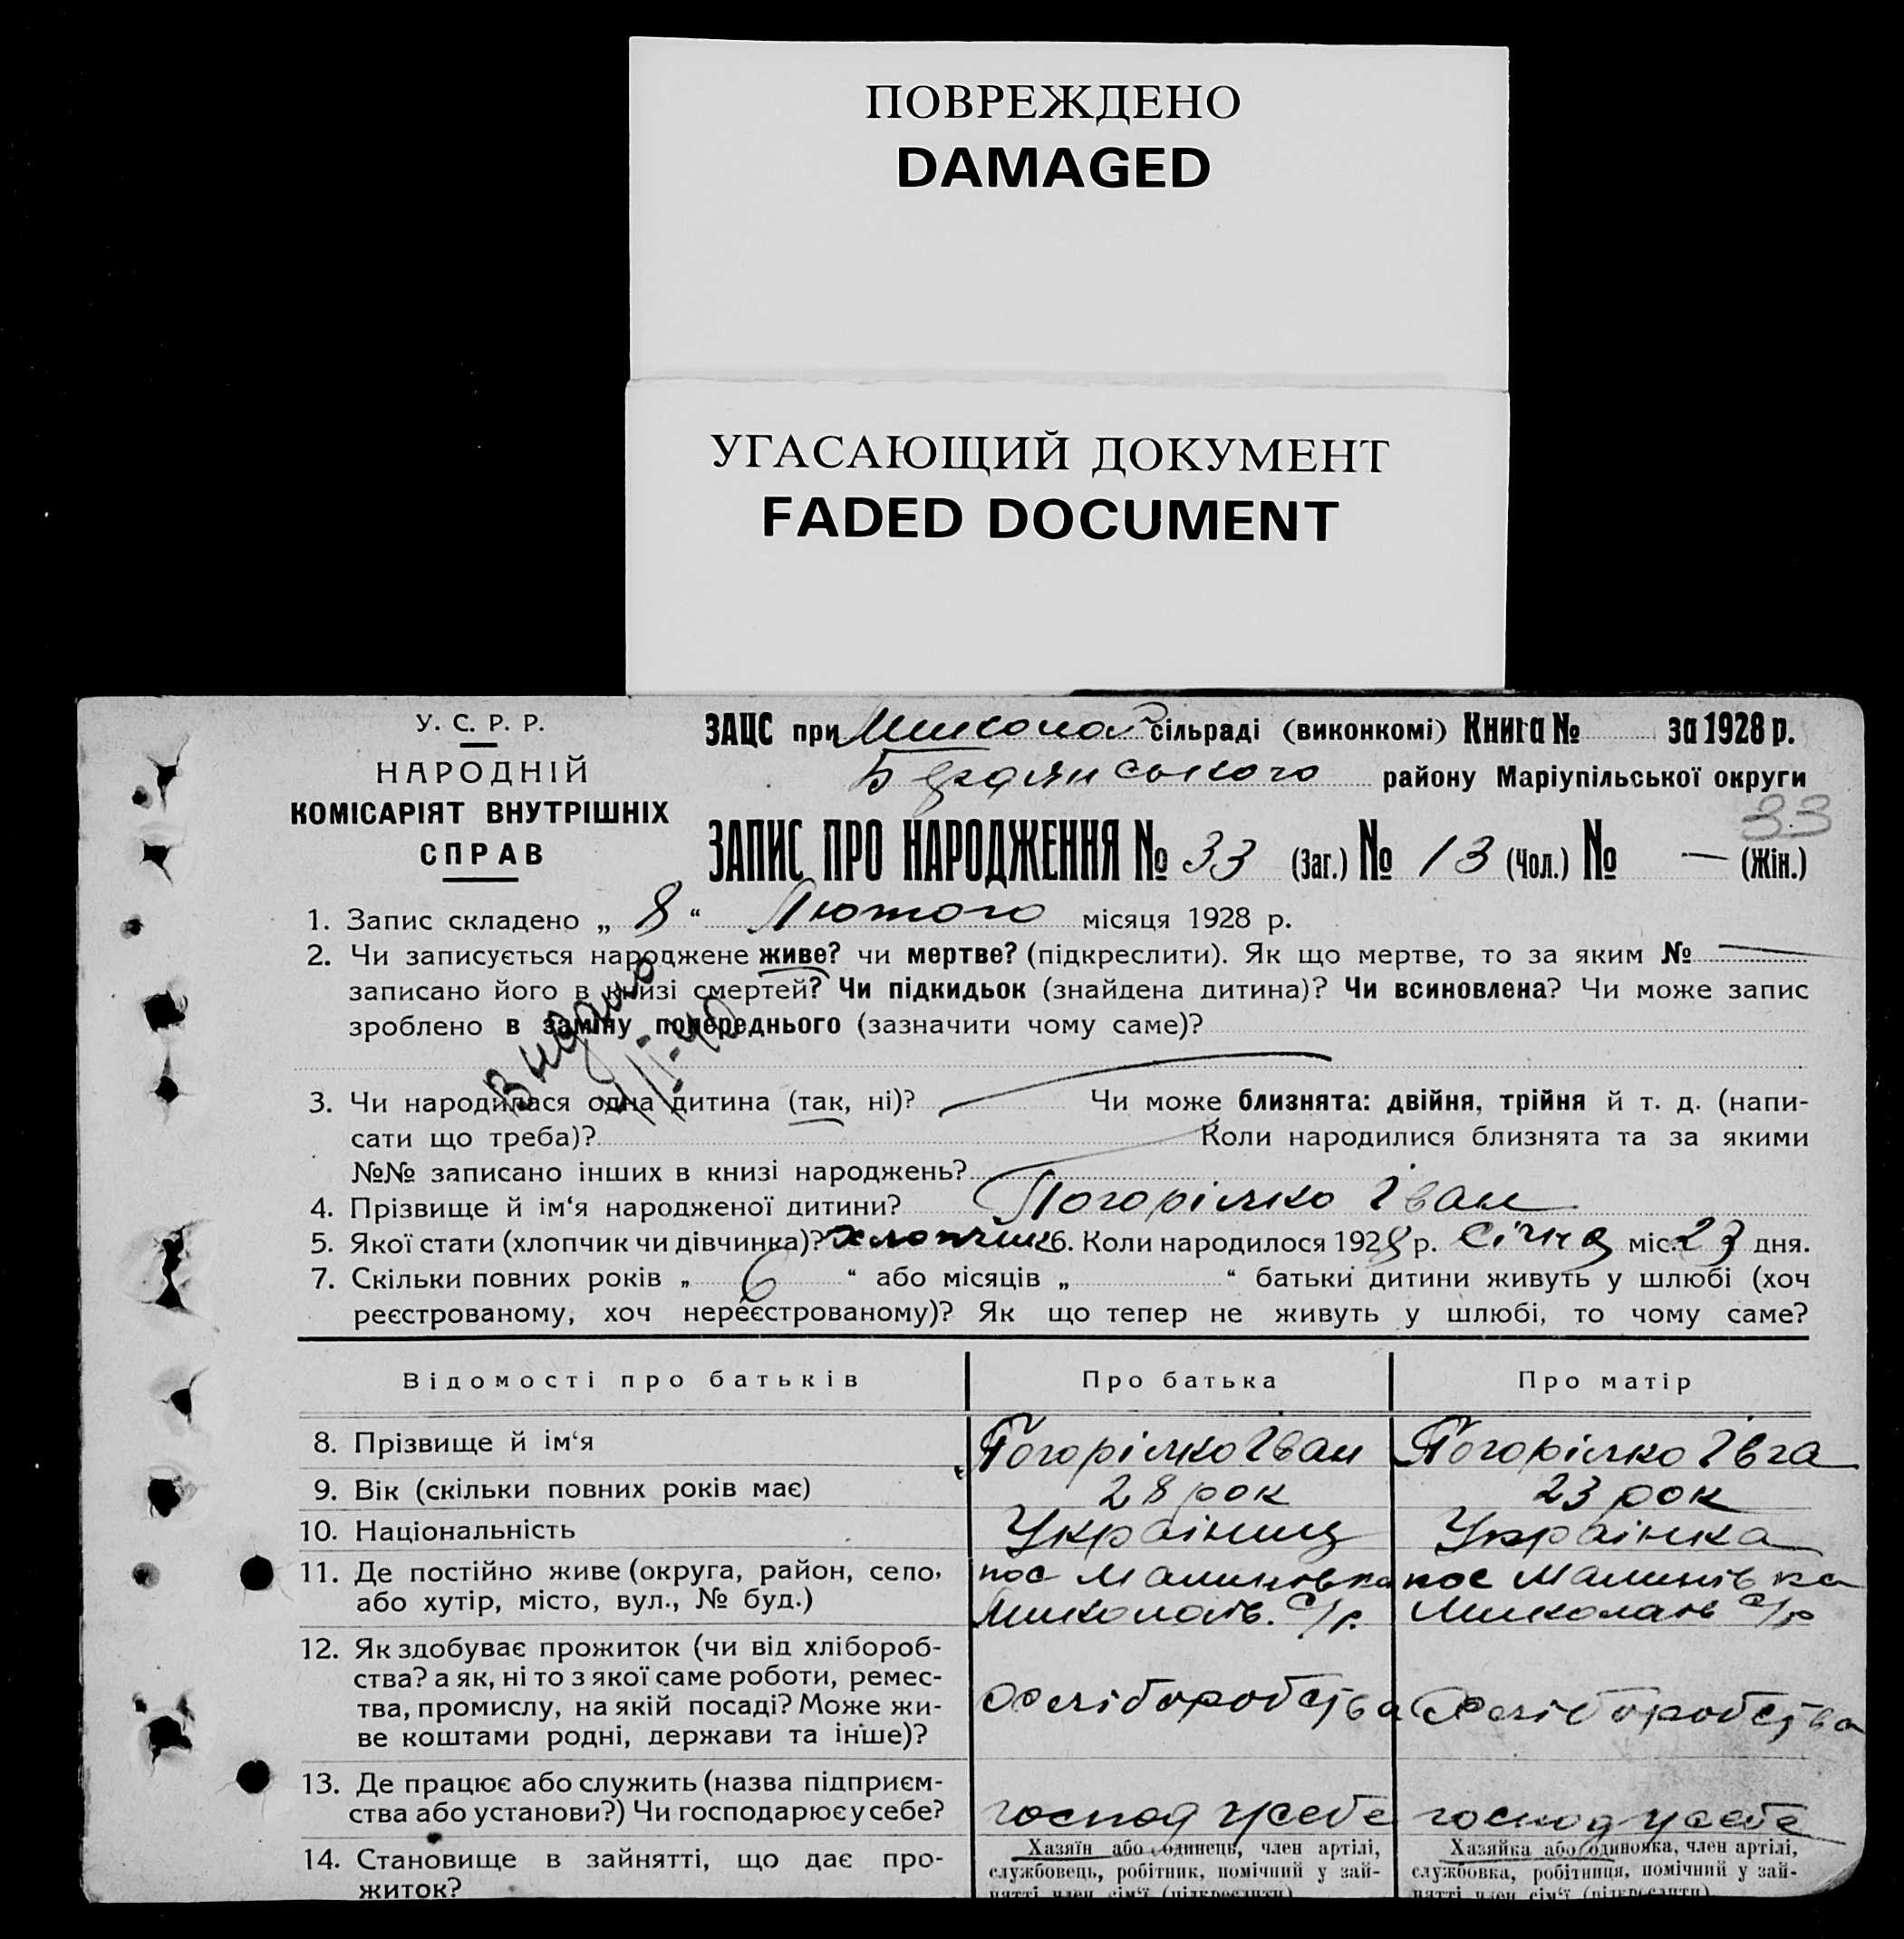 ПОВРЕЖДЕНО
DAMAGED
УГАСАЮЩИЙ ДОКУМЕНТ
FADED DOCUMENT
У. С. Р. Р.
НАРОДНІЙ
КОМІСАРІЯТ ВНУТРІШНІХ
СПРАВ
ЗАЦС при Миколаї сільраді (виконкомі) Книга № за 1928 р.
Бердянського району Маріупільської округи
33
ЗАПИС ПРО НАРОДЖЕННЯ № 33 (Заг.) № 13 (Чол.) № — (Жін.)
1. Запис складено „ 8 “ Лютого місяця 1928 р.
2. Чи записується народжене живе? чи мертве? (підкреслити). Як що мертве, то за яким № —
записано його в книзі смертей? Чи підкидьок (знайдена дитина)? Чи всиновлена? Чи може запис
зроблено в заміну попереднього (зазначити чому саме)?
Видано
3. Чи народилася одна дитина (так, ні)? Чи може близнята: двійня, трійня й т. д. (напи-
сати що треба)? Коли народилися близнята та за якими
№№ записано інших в книзі народжень?
4. Прізвище й ім‘я народженої дитини? Погорілко Іван
5. Якої стати (хлопчик чи дівчинка)? хлопчик 6. Коли народилося 1928 р. Січня міс. 23 дня.
7. Скільки повних років „ 6 “ або місяців „ “ батьки дитини живуть у шлюбі (хоч
реєстрованому, хоч нереєстрованому)? Як що тепер не живуть у шлюбі, то чому саме?
Відомості про батьків Про батька Про матір
8. Прізвище й ім‘я Погорілко Іван Погорілко Івга
9. Вік (скільки повних років має) 28 рок 23 рок
10. Національність Українец Українка
11. Де постійно живе (округа, район, село, пос Малинівка пос Малинівка
або хутір, місто, вул., № буд.) Миколаїв. с/р. Миколаїв с/р
12. Як здобуває прожиток (чи від хлібороб-
ства? а як, ні то з якої саме роботи, ремес-
тва, промислу, на якій посаді? Може жи- Хліборобства Хліборобства
ве коштами родні, держави та інше)?
13. Де працює або служить (назва підприєм-
ства або установи?) Чи господарює у себе? господ у себе господ у себе
14. Становище в зайнятті, що дає про- Хазяїн або одинець, член артілі, Хазяйка або одиночка, член артілі,
житок? службовець, робітник, помічний у зай- службовка, робітниця, помічний у зай-
нятті член сім‘ї (підкреслити) нятті член сім‘ї (підкреслити)